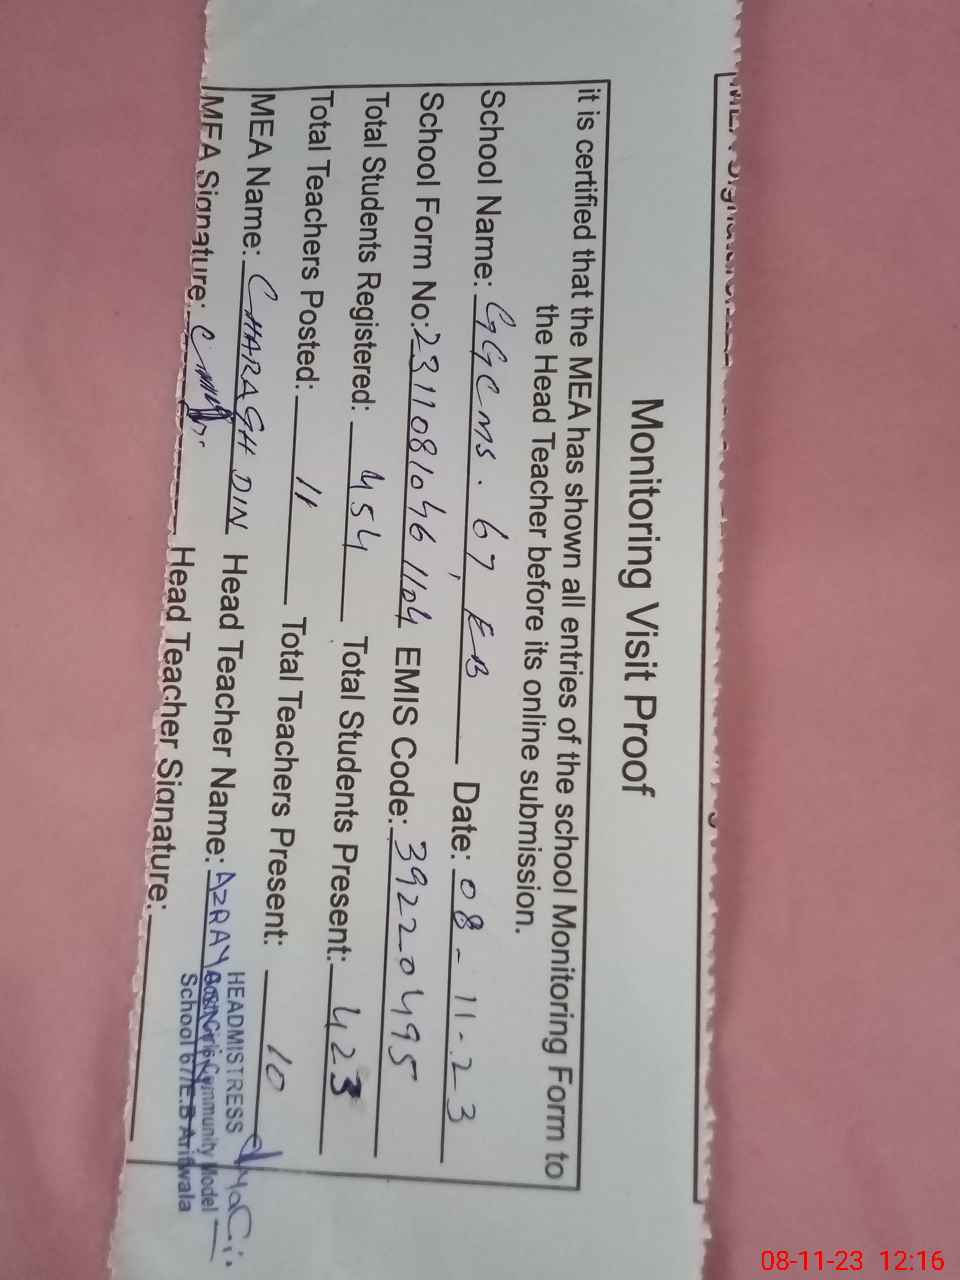 Monitoring Visit Proof
it is certified that the MEA has shown all entries of the school Monitoring Form to
the Head Teacher before its online submission.
School Name: GGCMS. 67, EB Date: 08-11-23
School Form No: 231108104611104 EMIS Code: 39220495
Total Students Registered: 454 Total Students Present: 423
Total Teachers Posted: 11 Total Teachers Present: 10
MEA Name: CHARAGH DIN Head Teacher Name: AZRA
HEADMISTRESS
Govt Girls Community Model
School 67/E.B Arifwala
MEA Signature: Head Teacher Signature:
08-11-23 12:16